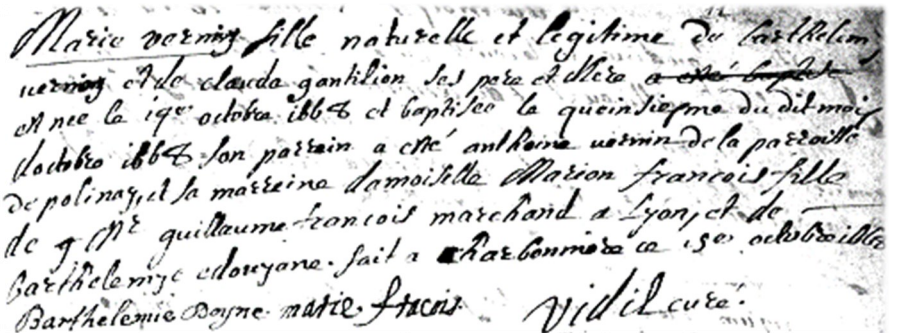 Marie vernin fille naturelle et legitime de barthelemy
vernin et de clauda gantilion ses pere et Mere a esté baptisé
est nee la 14e octobre 1668 et baptisee la queinsiesme du dit mois
doctobre 1668 son parrein a esté anthoine vernin de la parroisse
de polinay, et sa marreine damoiselle Marion françois fille
de Mr guillaume françois marchand a Lyon, et de
barthelemye doyane. fait a charbonniere ce 15e octobre 1668
Barthelemie Doyne marie fracois Vidil curé.